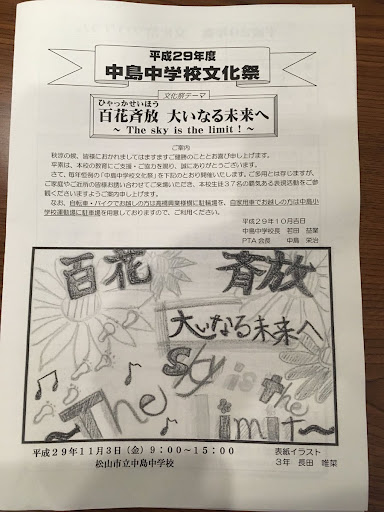 平成29年度
中島中学校文化祭
文化祭テーマ
ひゃっかせいほう
百花斉放 大いなる未来へ
～ The sky is the limit！～
ご案内
秋涼の候、皆様におかれましてはますますご健勝のこととお喜び申し上げます。
平素は、本校の教育にご支援・ご協力を賜り、誠にありがとうございます。
さて、毎年恒例の「中島中学校文化祭」を下記のとおり開催いたします。ご多用とは存じますが、
ご家庭やご近所の皆様お誘い合わせてご来場いただき、本校生徒37名の創意ある表現活動をご参
観くださいますようご案内申し上げます。
なお、自転車・バイクでお越しの方は
に駐輪場を、自家用車でお越しの方は中島小
学校運動場に駐車場を用意しておりますので、ご利用ください。
平成29年10月吉日
中島中学校長
PTA会長 中島 栄治
百花 斉放
大いなる未来へ
Sky is the
The limit～
平成29年11月3日（金）9：00～15：00
松山市立中島中学校
表紙イラスト
3年 長田 唯菜